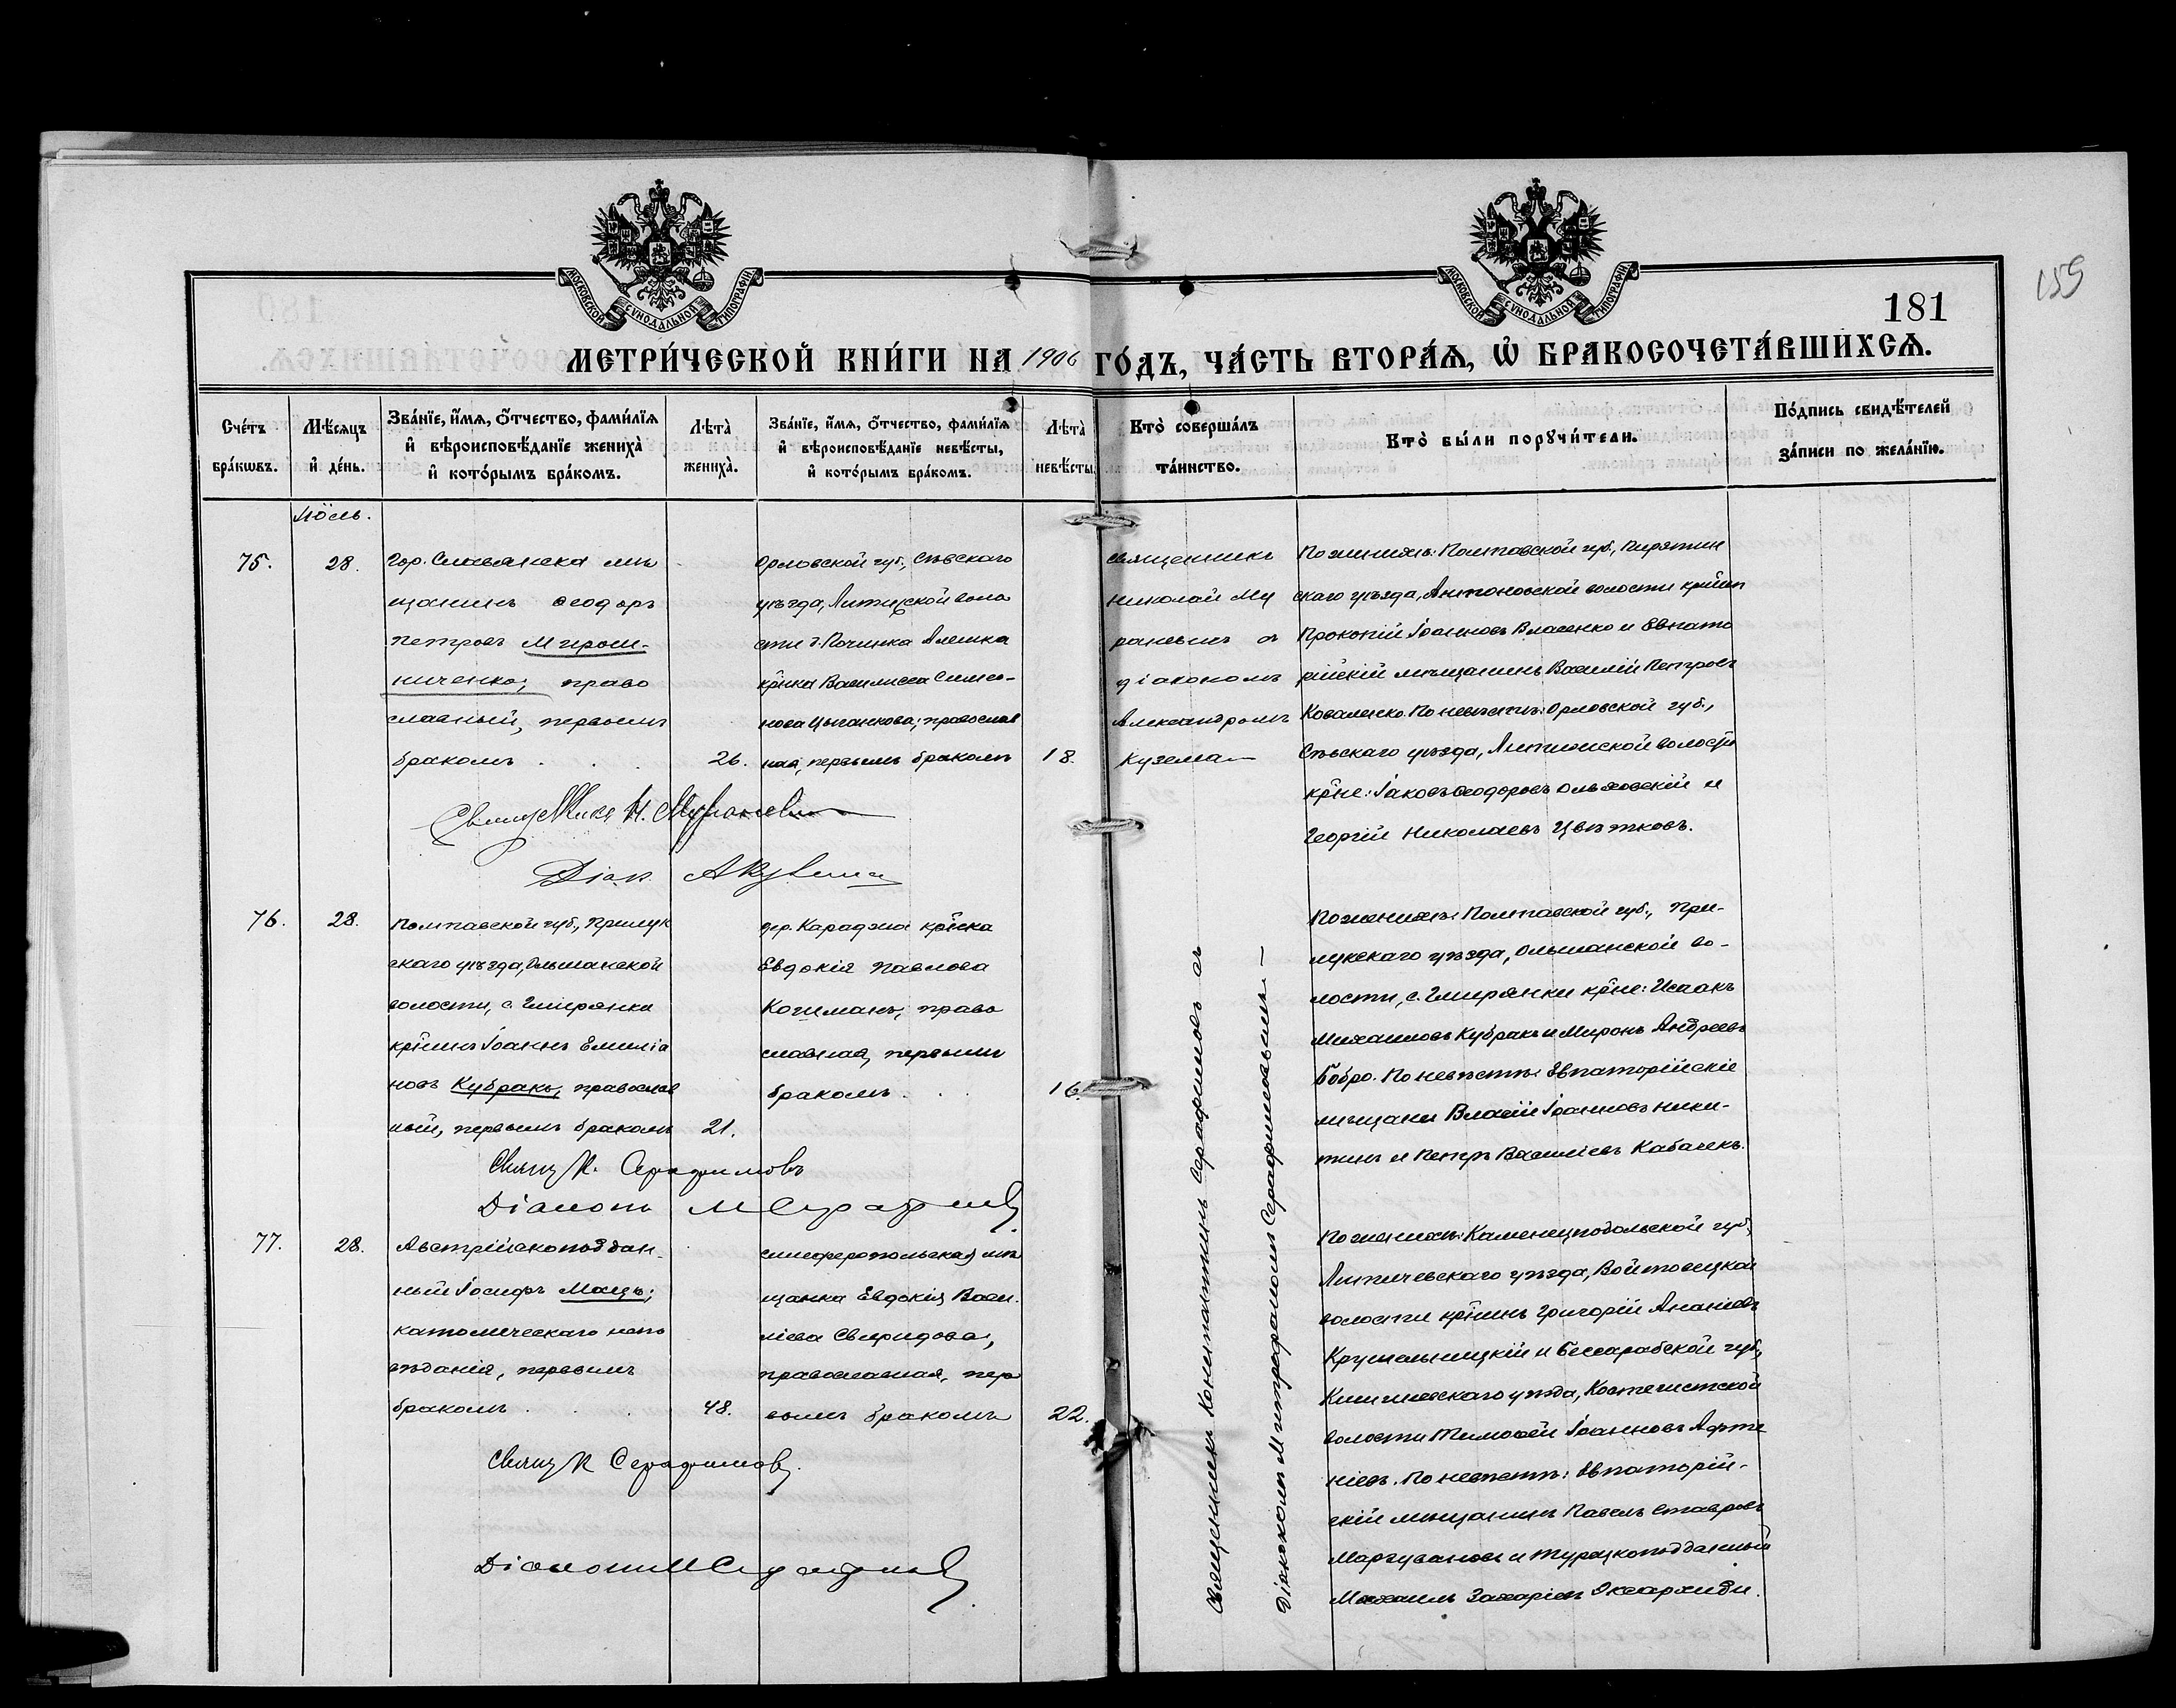 МОСКОВСКОЙ СѴНОДАЛЬНОЙ ТИПОГРАФІИ
МОСКОВСКОЙ СѴНОДАЛЬНОЙ ТИПОГРАФІИ
159
181
МЕТРИ́ЧЕСКОЙ КНИ́ГИ НА 1906 ГО́ДЪ, ЧА́СТЬ ВТОРА́Я, Ѡ҆ БРАКОСОЧЕТА́ВШИХСЯ.
Сче́тъ бра́кѡвъ.
Мѣ́сяцъ и҆ де́нь.
Зва́нїе, и҆́мя, ѻ҆́тчество, фами́лїя
и҆ вѣроисповѣ́данїе жениха̀
и҆ кото́рымъ бра́комъ.
Лѣта̀ жениха̀.
Зва́нїе, и҆́мя, ѻ҆́тчество, фами́лїя
и҆ вѣроисповѣ́данїе невѣ́сты,
и҆ кото́рымъ бра́комъ.
Лѣта̀ невѣ́сты.
Кто̀ соверша́лъ
та́инство.
Кто̀ бы́ли порꙋчи́тели.
По́дпись свидѣ́телей
за́писи по жела́нїю.
Іюль.
75.
28.
Гор. Славянска мѣ
щанинъ Ѳеодоръ
Петровъ Мирош-
ниченко; право
славный, первымъ
бракомъ . . .
26.
Орловской губ., Сѣвскаго
уѣзда, Литижской воло
сти д. Починка Алешка
крⷭ҇нка Василисса Симео-
нова Цыганкова; православ
ная, первымъ бракомъ
18.
Священникъ
Николай Му
раневичъ съ
діакономъ
Александромъ
Кузема
По женихѣ: Полтавской губ., Пирятин
скаго уѣзда, Антоновской волости крⷭ҇нинъ
Прокопій Іоанновъ Власенко и Евпато
рійскій мѣщанинъ Василій Петровъ
Коваленко. По невѣстѣ: Орловской губ.,
Сѣвскаго уѣзда, Литижской волости
крⷭ҇не: Іаковъ Ѳеодоровъ Ольховскій и
Георгій Николаевъ Цвѣтковъ.
Священникъ Н. Мураневичъ
Діак. А Кузема
76.
28.
Полтавской губ., Прилук
скаго уѣзда, Ольшанской
волости, с. Гмирянки
крⷭ҇нинъ Іоаннъ Емиліа
новъ Кубракъ; православ
ный, первымъ бракомъ
21.
дер. Караджа крⷭ҇нска
Евдокія Павлова
Когиманъ, право
славная, первымъ
бракомъ . . .
16.
Священникъ Константинъ Серафимовъ съ
Діакономъ Митрофаномъ Серафимовымъ. —
По женихѣ: Полтавской губ., При-
лукскаго уѣзда, Ольшанской во-
лости, с. Гмирянки крⷭ҇не: Исаакъ
Михаиловъ Кубракъ и Миронъ Андреевъ
Бобро. По невѣстѣ: Евпаторійскіе
мѣщане Власій Іоанновъ Ники-
тинъ и Петръ Василіевъ Кабачекъ.
Свящ К. Серафимовъ
Діаконъ М Серафимовъ
77.
28.
Австрійскоподдан-
ный Іосифъ Мацъ;
католическаго испо
вѣданія, первымъ
бракомъ . . .
48.
Симферопольская мѣ
щанка Евдокія Васи
ліева Свиридова,
православная, пер
вымъ бракомъ
22.
По женихѣ: Каменецподольской губ.,
Литичевскаго уѣзда, Войтовецкой
волости крⷭ҇нинъ Григорій Ананіевъ
Крушельницкій и Бессарабской губ.,
Кишиневскаго уѣзда, Костештской
волости Тимоѳей Іоанновъ Афте
ніевъ. По невѣстѣ: Евпаторій-
скій мѣщанинъ Павелъ Ставровъ
Маргувановъ и турецкоподданный
Михаилъ Захаріевъ Эксархиди.
Свящ К Серафимовъ.
Діаконъ М Серафимовъ